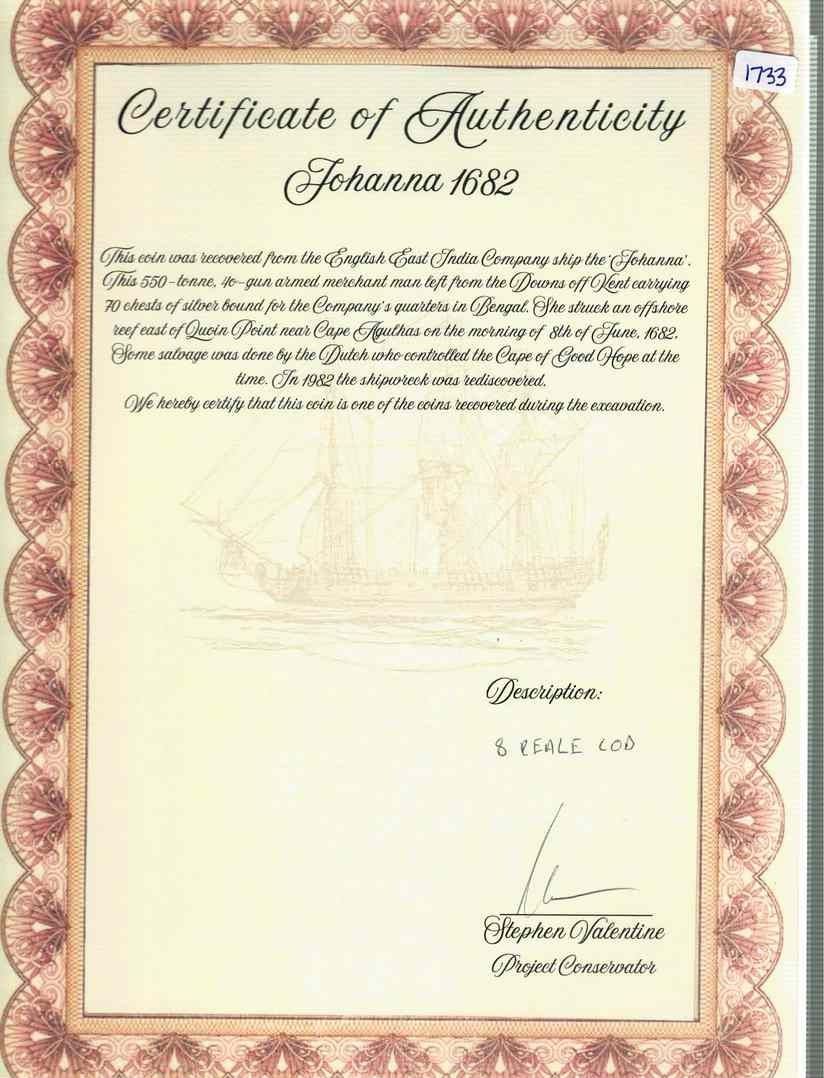 1733
Certificate of Authenticity
Johanna 1682
This coin was recovered from the English East India Company ship the 'Johanna'.
This 550-tonne, 40-gun armed merchant man left from the Downs off Kent carrying
70 chests of silver bound for the Company's quarters in Bengal. She struck an offshore
reef east of Quoin Point near Cape Agulhas on the morning of 8th of June, 1682.
Some salvage was done by the Dutch who controlled the Cape of Good Hope at the
time. In 1982 the shipwreck was rediscovered.
We hereby certify that this coin is one of the coins recovered during the excavation.
Description:
8 REALE COB
Stephen Valentine
Project Conservator